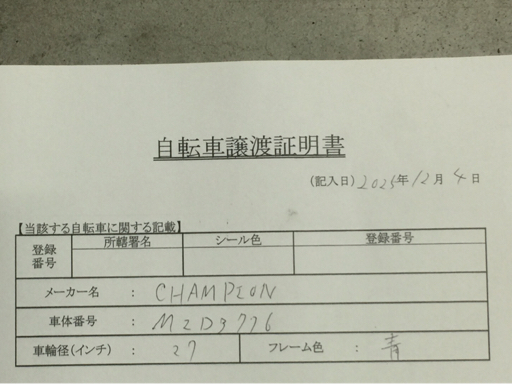 自転車譲渡証明書
(記入日) 2025年 12月 4日
【当該する自転車に関する記載】
登録番号 所轄署名 シール色 登録番号
メーカー名 : CHAMPION
車体番号 : M2D9776
車輪径(インチ) : 27 フレーム色 : 青